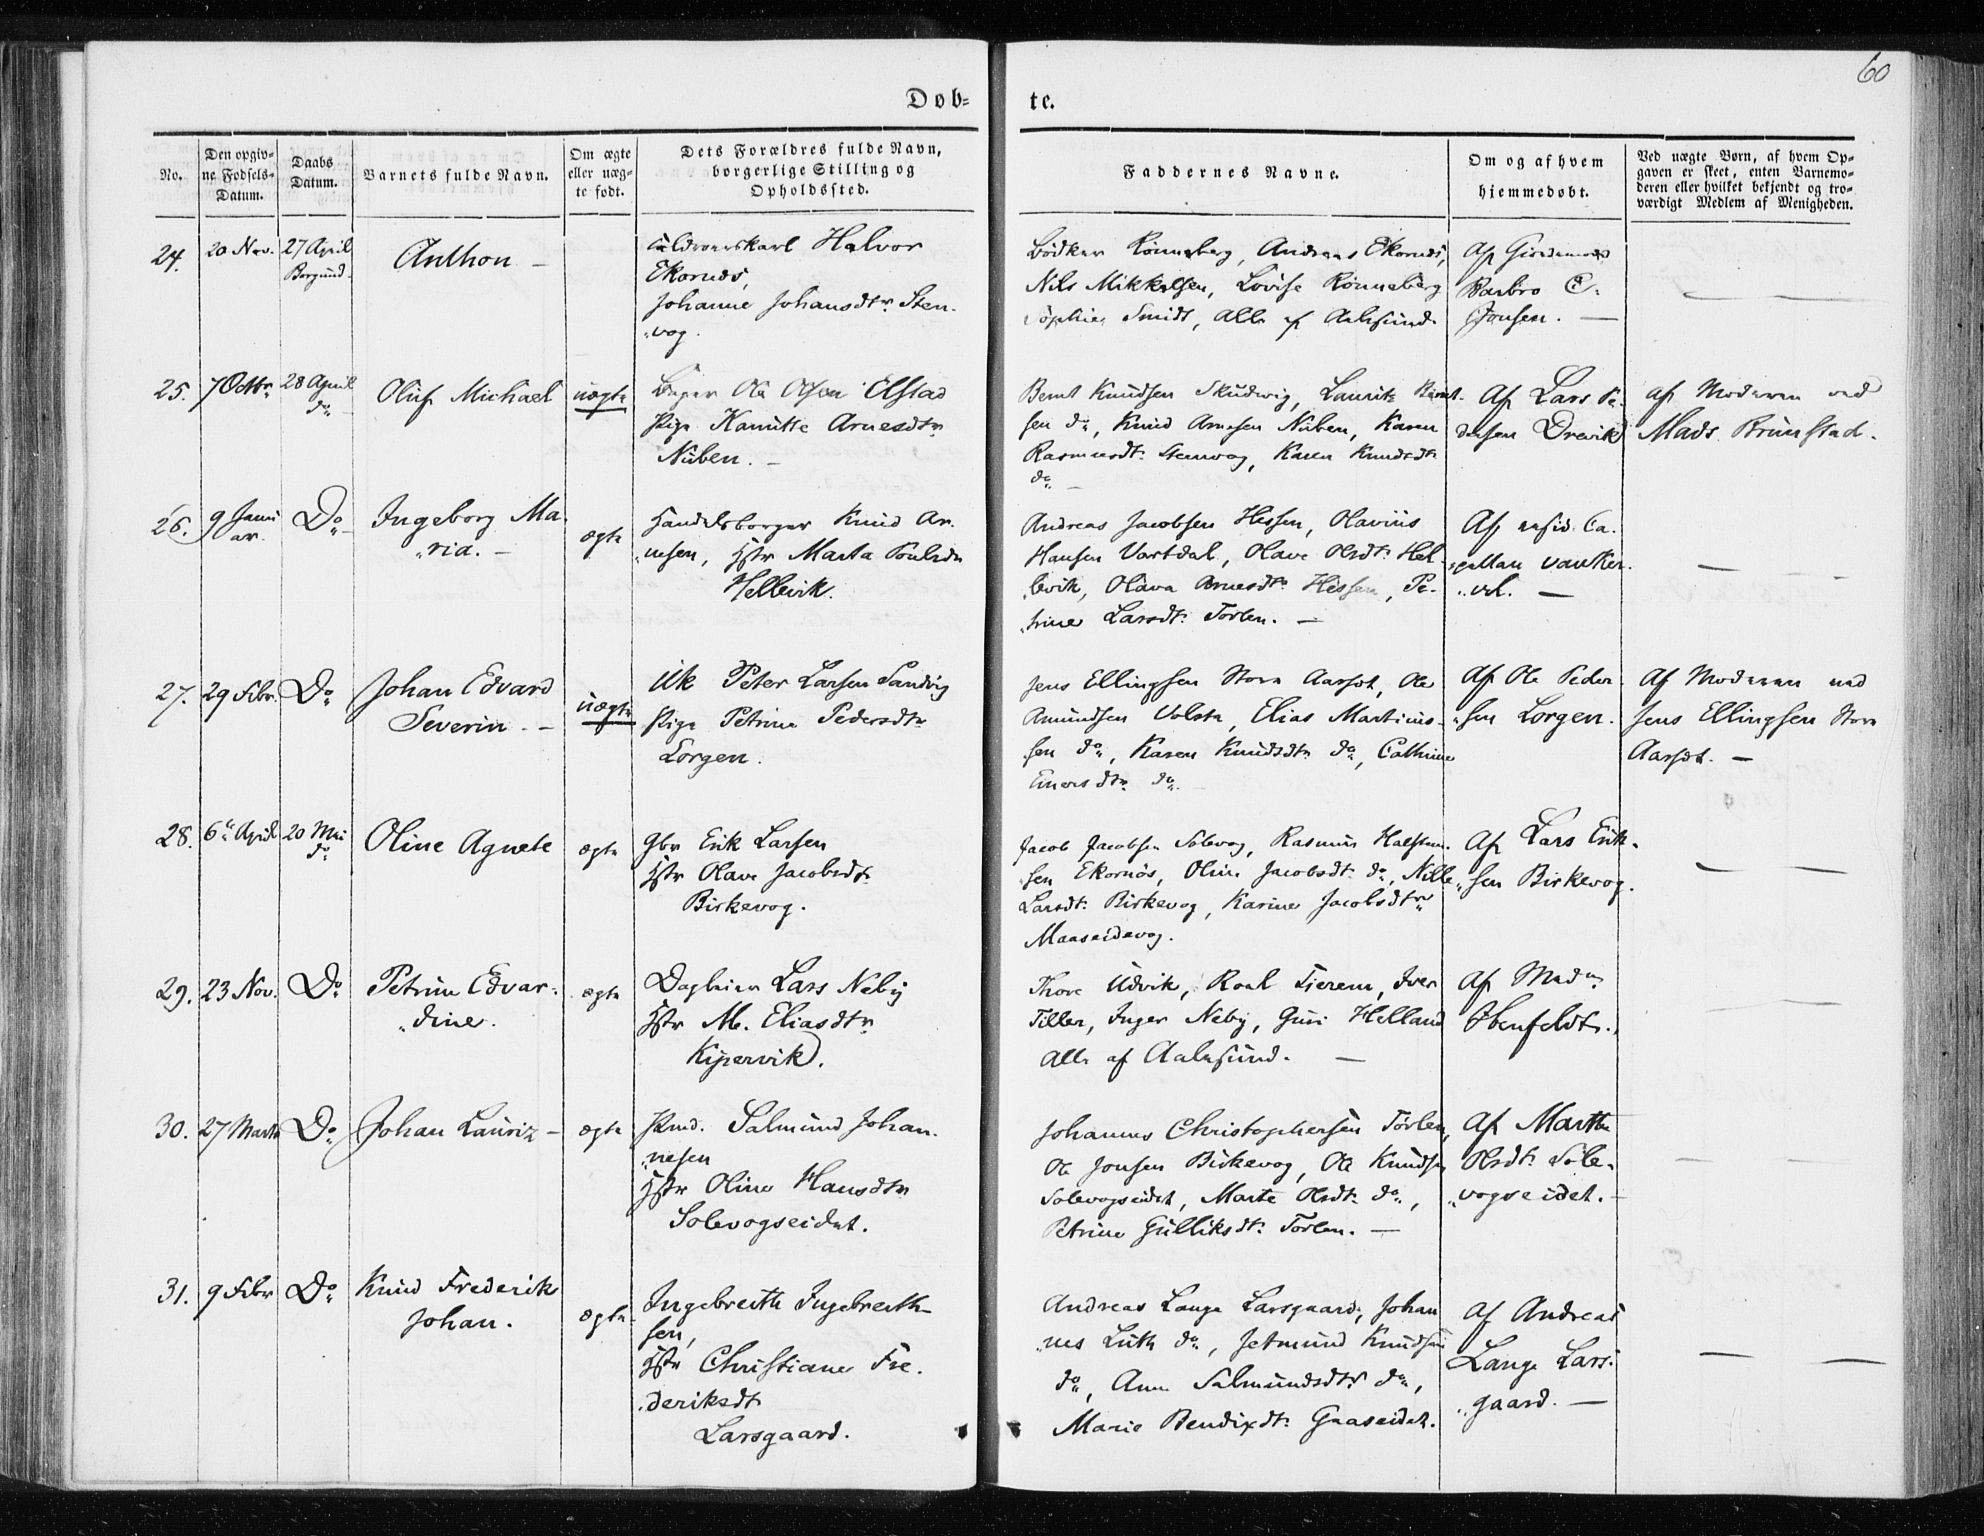 60
Døb-
te.
No.
Den opgiv-
ne Fødsels-
Datum.
Daabs
Datum.
Barnets fulde Navn.
Om ægte
eller uæg-
te født.
Dets Forældres fulde Navn,
borgerlige Stilling og
Opholdssted.
Faddernes Navne.
Om og af hvem
hjemmedøbt.
Ved uægte Børn, af hvem Op-
gaven er skeet, enten Barnemo-
deren eller hvilket bekjendt og tro-
værdigt Medlem af Menigheden.
24.
20 Nov.
27 April
Borgund.
Anthon –
Halvor
Ekornæs,
Johanne Johansdtr. Sten-
„vog.
Bødker Rønneberg, Andreas Ekornæs,
Nils Mikkelsen, Lovise Rønneberg
Sophie Smidt, alle af Aalesund.
Af Giordemoder
Barbro E.
Jonsen. —
25.
7 Octbr.
28 April
do.
Oluf Michael
uægte
Ole Olsen Elstad
Pige Hanutte Arnesdtr
Nüben. –
Bernt Knudsen Skudvig, Lauritz Bernt-
sen do, Knud Arnesen Nüben, Karen
Rasmusdt. Stenvog, Karen Knudsdtr
do –
Af Lars Pe-
dersen Drevik
af Moderen ved
Mads Brunstad.
26.
9 Janu
ar.
Do
Ingeborg Ma-
„ria. –
ægte
Handelsborger Knud Ar-
„nesen, Hstr Marta Poulsdr
Hellevik.
Andreas Jacobsen Hessen, Olavius
Hansen Vartdal, Olave Olsdt. Hel-
levik, Olava Arnesdt. Hessen, Pe-
„trine Larsdt. Torlen. –
Af resid. Ca-
„pellan
27.
29 Febr.
Do
Johan Edvard
Severin. –
uægte
Uk Peter Larsen Sandvig
Pige Petrine Pedersdtr
Lorgen.
Jens Ellingsen Store Aarset, Ole
Amundsen Volstr, Elias Martinus-
sen do, Karen Knudsdtr. do, Cathrine
do.
Af Ole Peder
„sen Lorgen.
Af Moderen ved
Jens Ellingsen Store
Aarset. –
28.
6te April
20 Mai
do
Oline Agnete
ægte
Gbr Erik Larsen
Hstr Olave Jacobsdt.
Birkevog.
Jacob Jacobsen Solevog, Rasmus Halsten-
sen Ekornæs, Oline Jacobsdt. do, Nille
Larsdt. Birkevog, Karine Jacobsdtr
Maaseidevog.
Af Lars Erik-
„sen Birkevog.
29.
23 Nov.
Do
Petrine Edvar-
„dine.
ægte
Dagleier Lars Neby
Hstr M. Eliasdtr
Kipervik.
Thore Udvik, Roal Tierem, Iver
Tiller, Inger Neby, Guri Helland
alle af Aalesund. —
Af Mad.
Ibenfeldt.
30.
27 Marts
Do
Johan Lauriz –
ægte
Pmd. Salmund Johan-
„nesen
Hstr Oline Hansdtr
Solevogseidet.
Johannes Christophersen Torlen,
Ole Jonsen Birkevog, Ole Knudsen
Solevogseidet, Marte Olsdt. do.,
Petrine Gulliksdt. Torlen. —
Af Marthe
Olsdt. Sole-
„vogseidet. –
31.
9 Febr
Do
Knud Frederik
Johan.
ægte
Ingebreth Ingebreth-
sen,
Hstr Christiane Fre-
„deriksdt
Larsgaard.
Andreas Lange Larsgaard, Johan
„nes Luth do, Jetmund Knudsen
do, Ane Salmundsdtr do,
Marie Bendixdt. Gaaseidet.
Af Andreas
Lange Lars-
„gaard. —